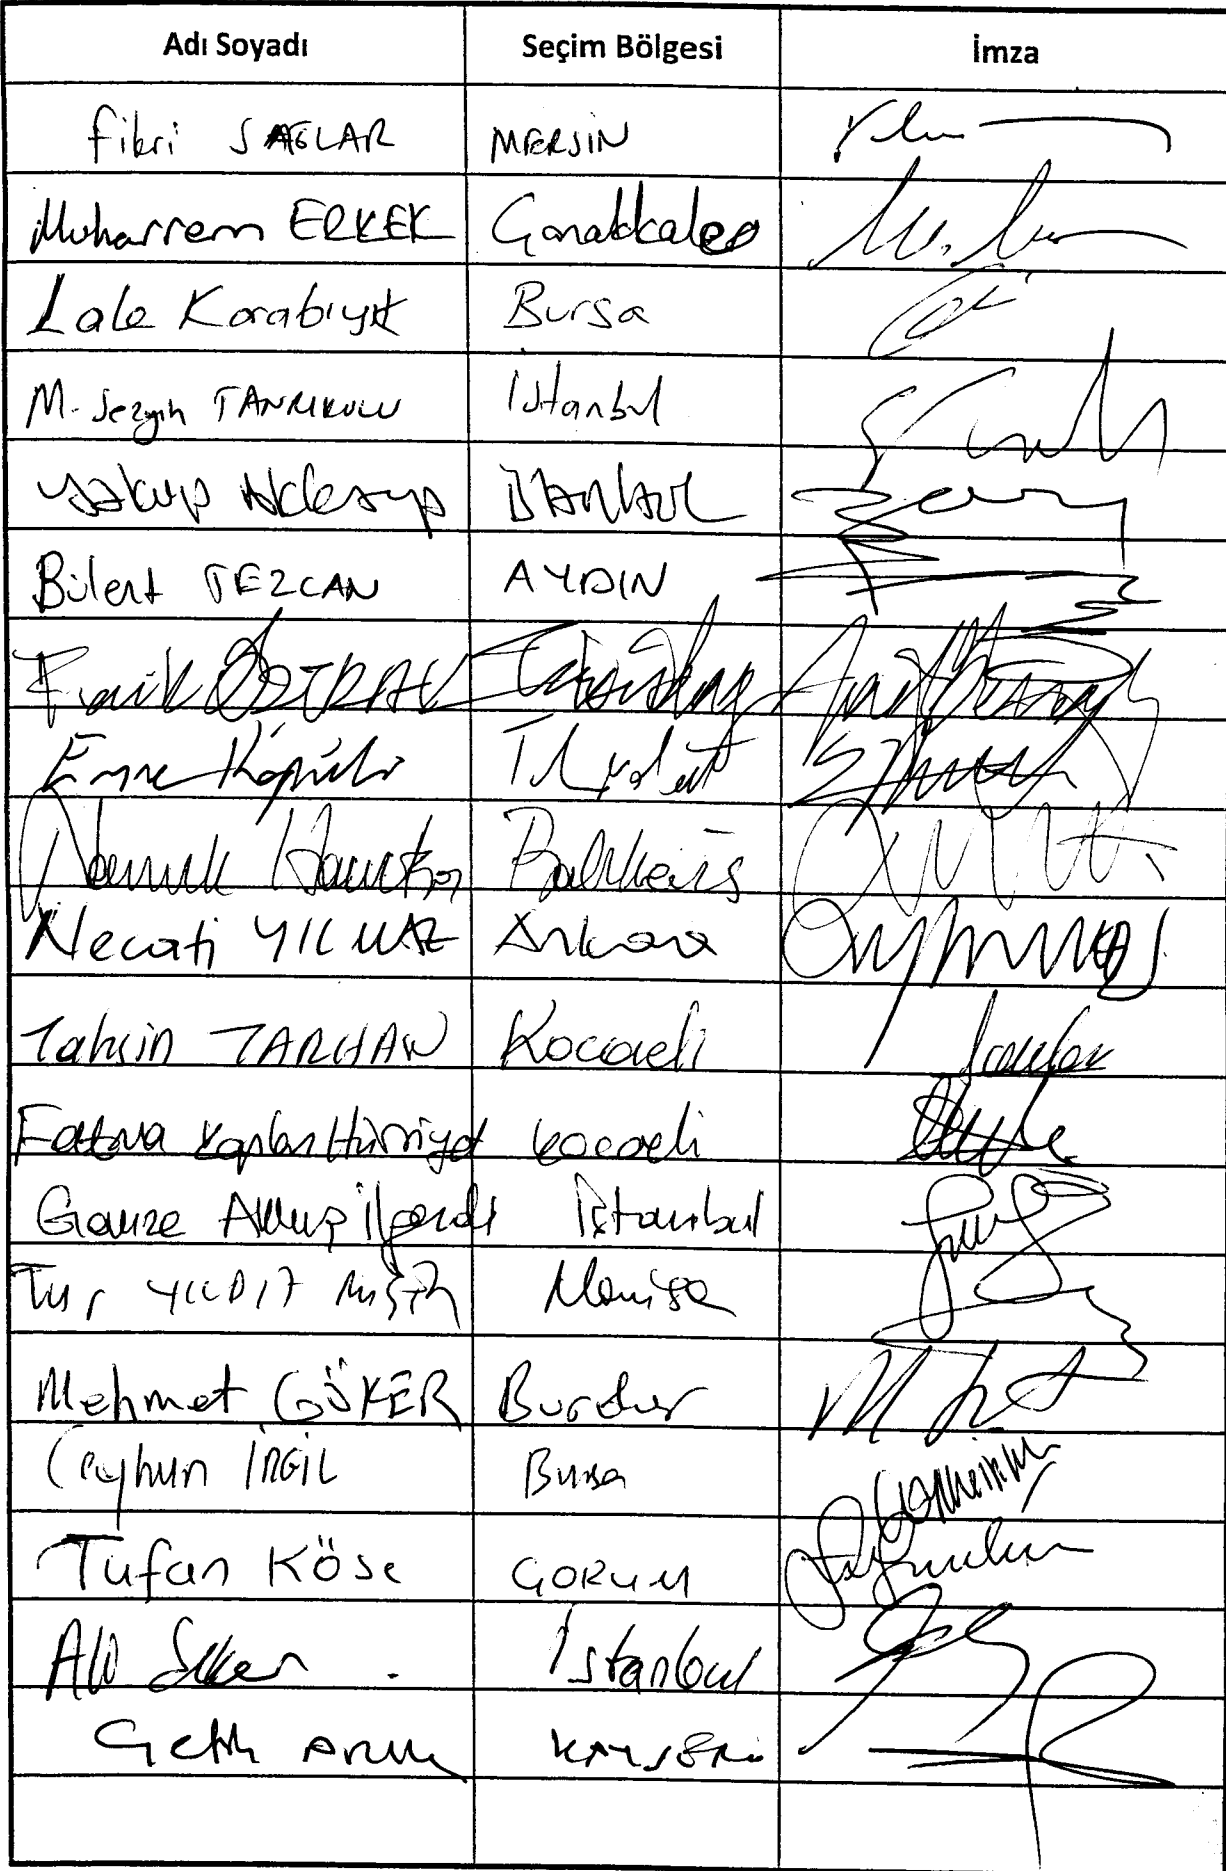 Adı Soyadı Seçim Bölgesi İmza
Fikri SAĞLAR MERSİN
Muharrem ERKEK Çanakkale
Lale Karabıyık Bursa
M. Sezgin TANRIKULU İstanbul
Yakup Akkaya İSTANBUL
Bülent TEZCAN AYDIN
Faik ÖZTRAK Tekirdağ
Emre Köprülü Tekirdağ
Namık Havutça Balıkesir
Necati YILMAZ Ankara
Tahsin TARHAN Kocaeli
Fatma Kaplan Hürriyet Kocaeli
Gamze Akkuş İlgezdi İstanbul
Tur YILDIZ BİÇER Manisa
Mehmet GÖKER Burdur
Ceyhun İRGİL Bursa
Tufan KÖSE ÇORUM
Ali Şeker İstanbul
Çetin ARIK KAYSERİ